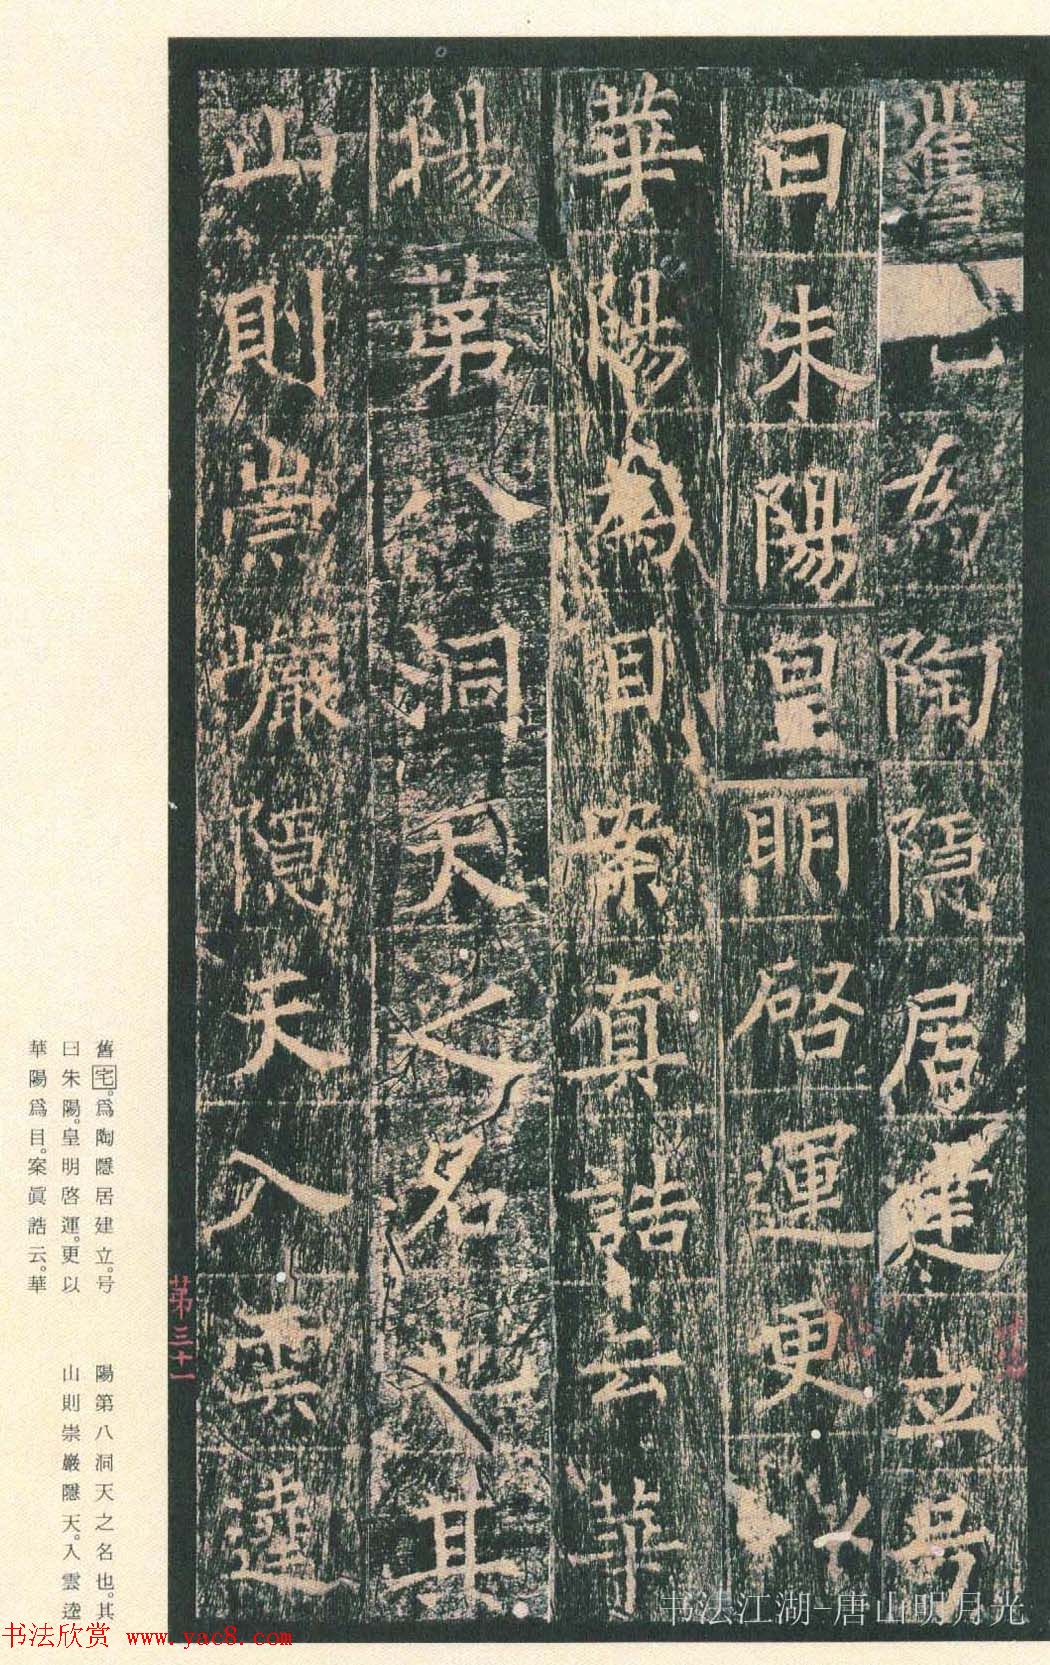 舊為陶隱居建立号
曰朱陽皇明啓運更以
華陽為目案真誥云華
陽第八洞天之名也其
山則崇巖隱天入雲逵
舊宅。為陶隱居建立。号
曰朱陽。皇明啓運。更以
華陽為目。案眞誥云。華
陽第八洞天之名也。其
山則崇巖隱天。入雲逵
第三十一
书法江湖-唐山明月光
书法欣赏 www.yac8.com